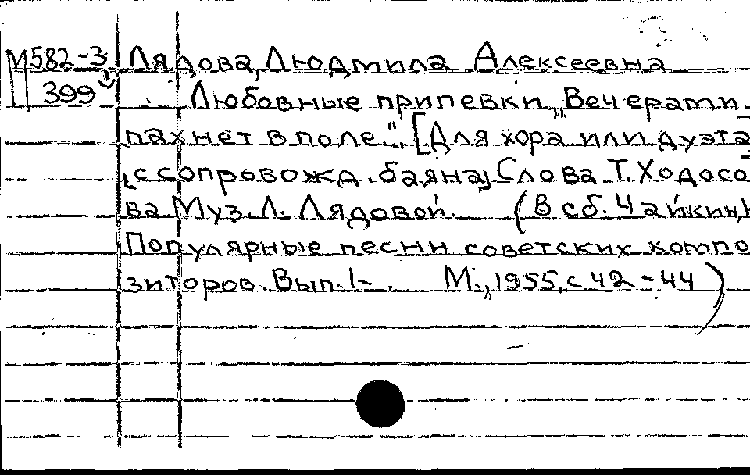 М582-3 Лядова, Людмила Алексеевна
399 Любовные припевки „Вечерами
пахнет в поле...". [Для хора или дуэта
с сопровожд. баяна] Слова Т. Ходосо-
ва Муз. Л. Лядовой. (В сб. Чайкин, Н
Популярные песни советских компо-
зиторов. Вып. 1-. М., 1955, с. 42-44)